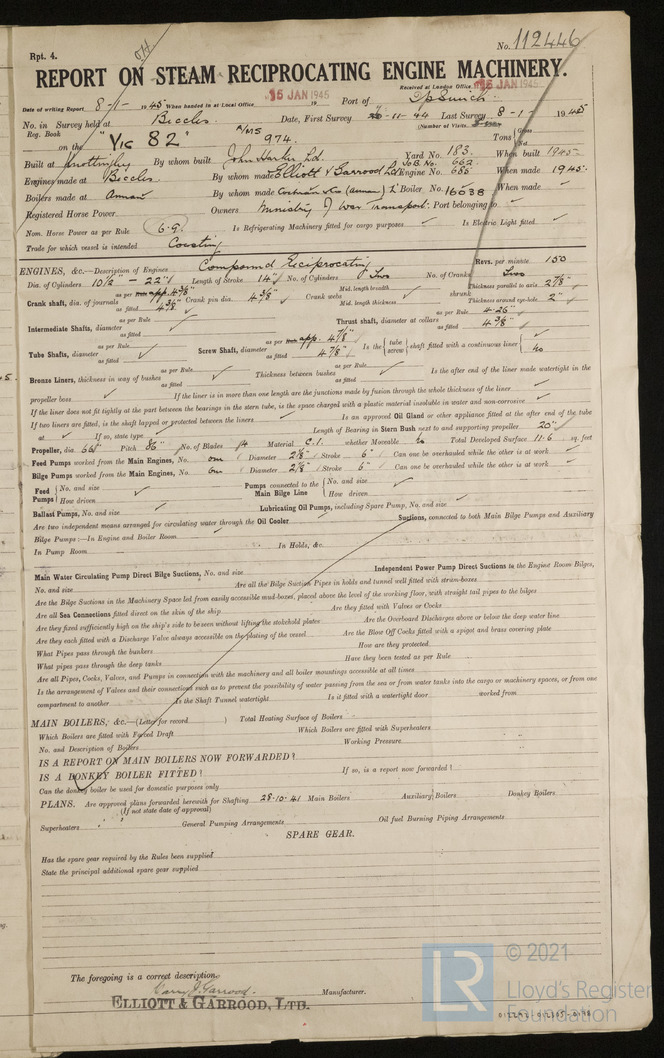 Rpt. 4.
No. 112446
REPORT ON STEAM RECIPROCATING ENGINE MACHINERY.
Received at London Office 15 JAN 1945
Date of writing Report 8-1- 1945 When handed in at Local Office 15 JAN 1945 19 Port of Ipswich
No. in Survey held at Beccles Date, First Survey -11-44 Last Survey 8-1- 1945
Reg. Book (Number of Visits
on the "Vic 82" 974. Tons { Gross Net
Built at Knottingley By whom built John Harker Ld. Yard No. 183. When built 1945
Engines made at Beccles By whom made Elliott & Garrood Ld Engine No. 685 662 When made 1945.
Boilers made at Annan By whom made Cochran & Co (Annan) Ld Boiler No. 16038 When made
Registered Horse Power Owners Ministry of War Transport: Port belonging to
Nom. Horse Power as per Rule 69. Is Refrigerating Machinery fitted for cargo purposes Is Electric Light fitted
Trade for which vessel is intended Coasting
ENGINES, &c.—Description of Engines Compound Reciprocating Revs. per minute 150
Dia. of Cylinders 10½" - 22" Length of Stroke 14" No. of Cylinders Two No. of Cranks Two
Crank shaft, dia. of journals as per Rule app. 4⅜" as fitted 4⅜" Crank pin dia. 4⅜" Crank webs Mid. length breadth Mid. length thickness shrunk Thickness parallel to axis 2⅞" Thickness around eye-hole 2"
Intermediate Shafts, diameter as per Rule as fitted Thrust shaft, diameter at collars as per Rule 4.25" as fitted 4⅜"
Tube Shafts, diameter as per Rule as fitted Screw Shaft, diameter as per Rule app. 4⅞" as fitted 4⅞" Is the { tube screw } shaft fitted with a continuous liner { No
Bronze Liners, thickness in way of bushes as per Rule as fitted Thickness between bushes as per Rule as fitted Is the after end of the liner made watertight in the
propeller boss If the liner is in more than one length are the junctions made by fusion through the whole thickness of the liner
If the liner does not fit tightly at the part between the bearings in the stern tube, is the space charged with a plastic material insoluble in water and non-corrosive
If two liners are fitted, is the shaft lapped or protected between the liners Is an approved Oil Gland or other appliance fitted at the after end of the tube
at If so, state type Length of Bearing in Stern Bush next to and supporting propeller 20"
Propeller, dia. 66" Pitch 86" No. of Blades 4 Material C.I. whether Moveable No Total Developed Surface 11.6 sq. feet
Feed Pumps worked from the Main Engines, No. one Diameter 2⅛" Stroke 6" Can one be overhauled while the other is at work
Bilge Pumps worked from the Main Engines, No. one Diameter 2⅛" Stroke 6" Can one be overhauled while the other is at work
Feed Pumps { No. and size How driven Pumps connected to the Main Bilge Line { No. and size How driven
Ballast Pumps, No. and size Lubricating Oil Pumps, including Spare Pump, No. and size
Are two independent means arranged for circulating water through the Oil Cooler Suctions, connected to both Main Bilge Pumps and Auxiliary
Bilge Pumps:—In Engine and Boiler Room
In Pump Room In Holds, &c.
Main Water Circulating Pump Direct Bilge Suctions, No. and size Independent Power Pump Direct Suctions to the Engine Room Bilges,
No. and size Are all the Bilge Suction Pipes in holds and tunnel well fitted with strum-boxes
Are the Bilge Suctions in the Machinery Space led from easily accessible mud-boxes, placed above the level of the working floor, with straight tail pipes to the bilges
Are all Sea Connections fitted direct on the skin of the ship Are they fitted with Valves or Cocks
Are they fixed sufficiently high on the ship's side to be seen without lifting the stokehold plates Are the Overboard Discharges above or below the deep water line
Are they each fitted with a Discharge Valve always accessible on the plating of the vessel Are the Blow Off Cocks fitted with a spigot and brass covering plate
What Pipes pass through the bunkers How are they protected
What pipes pass through the deep tanks Have they been tested as per Rule
Are all Pipes, Cocks, Valves, and Pumps in connection with the machinery and all boiler mountings accessible at all times
Is the arrangement of Valves and their connections such as to prevent the possibility of water passing from the sea or from water tanks into the cargo or machinery spaces, or from one
compartment to another Is the Shaft Tunnel watertight Is it fitted with a watertight door worked from
MAIN BOILERS, &c.—(Letter for record ) Total Heating Surface of Boilers
Which Boilers are fitted with Forced Draft Which Boilers are fitted with Superheaters
No. and Description of Boilers Working Pressure
IS A REPORT ON MAIN BOILERS NOW FORWARDED?
IS A DONKEY BOILER FITTED? If so, is a report now forwarded?
Can the donkey boiler be used for domestic purposes only
PLANS. Are approved plans forwarded herewith for Shafting 28-10-41 Main Boilers Auxiliary Boilers Donkey Boilers
(If not state date of approval)
Superheaters General Pumping Arrangements Oil fuel Burning Piping Arrangements
SPARE GEAR.
Has the spare gear required by the Rules been supplied
State the principal additional spare gear supplied
The foregoing is a correct description,
Harry J. Garrood. Manufacturer.
ELLIOTT & GARROOD, LTD.
LR
© 2021
Lloyd's Register
Foundation